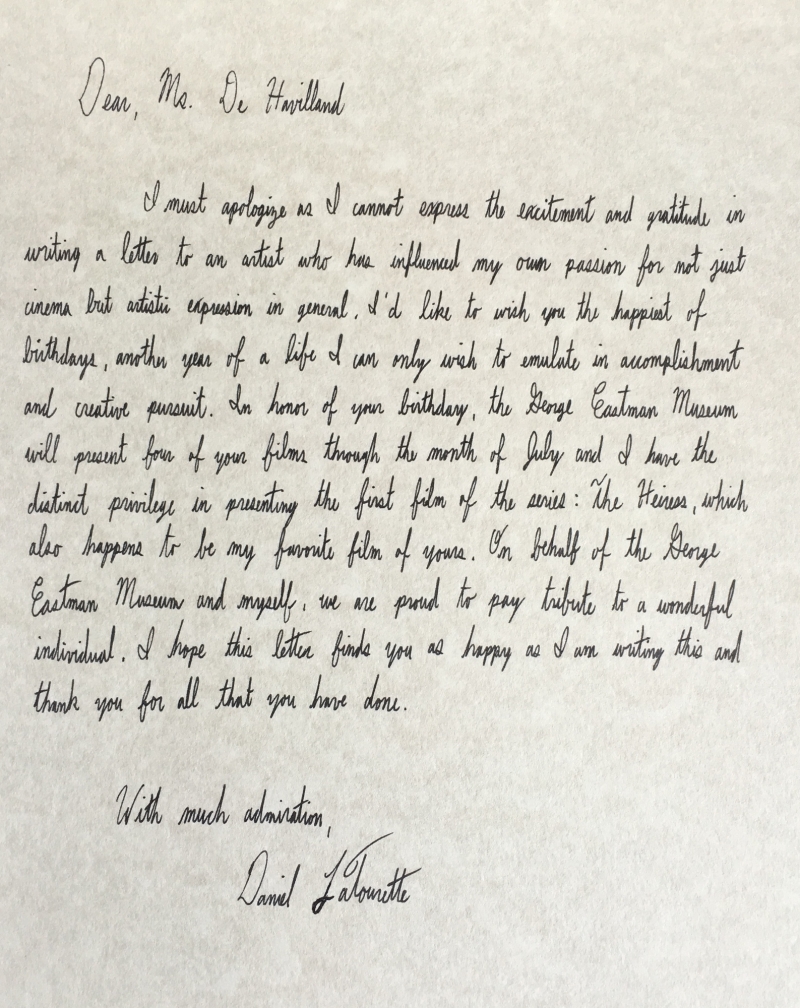 Dear, Ms. De Havilland
I must apologize as I cannot express the excitement and gratitude in
writing a letter to an artist who has influenced my own passion for not just
cinema but artistic expression in general. I'd like to wish you the happiest of
birthdays, another year of a life I can only wish to emulate in accomplishment
and creative pursuit. In honor of your birthday, the George Eastman Museum
will present four of your films through the month of July and I have the
distinct privilege in presenting the first film of the series: The Heiress, which
also happens to be my favorite film of yours. On behalf of the George
Eastman Museum and myself, we are proud to pay tribute to a wonderful
individual. I hope this letter finds you as happy as I am writing this and
thank you for all that you have done.
With much admiration,
Daniel LaTourette